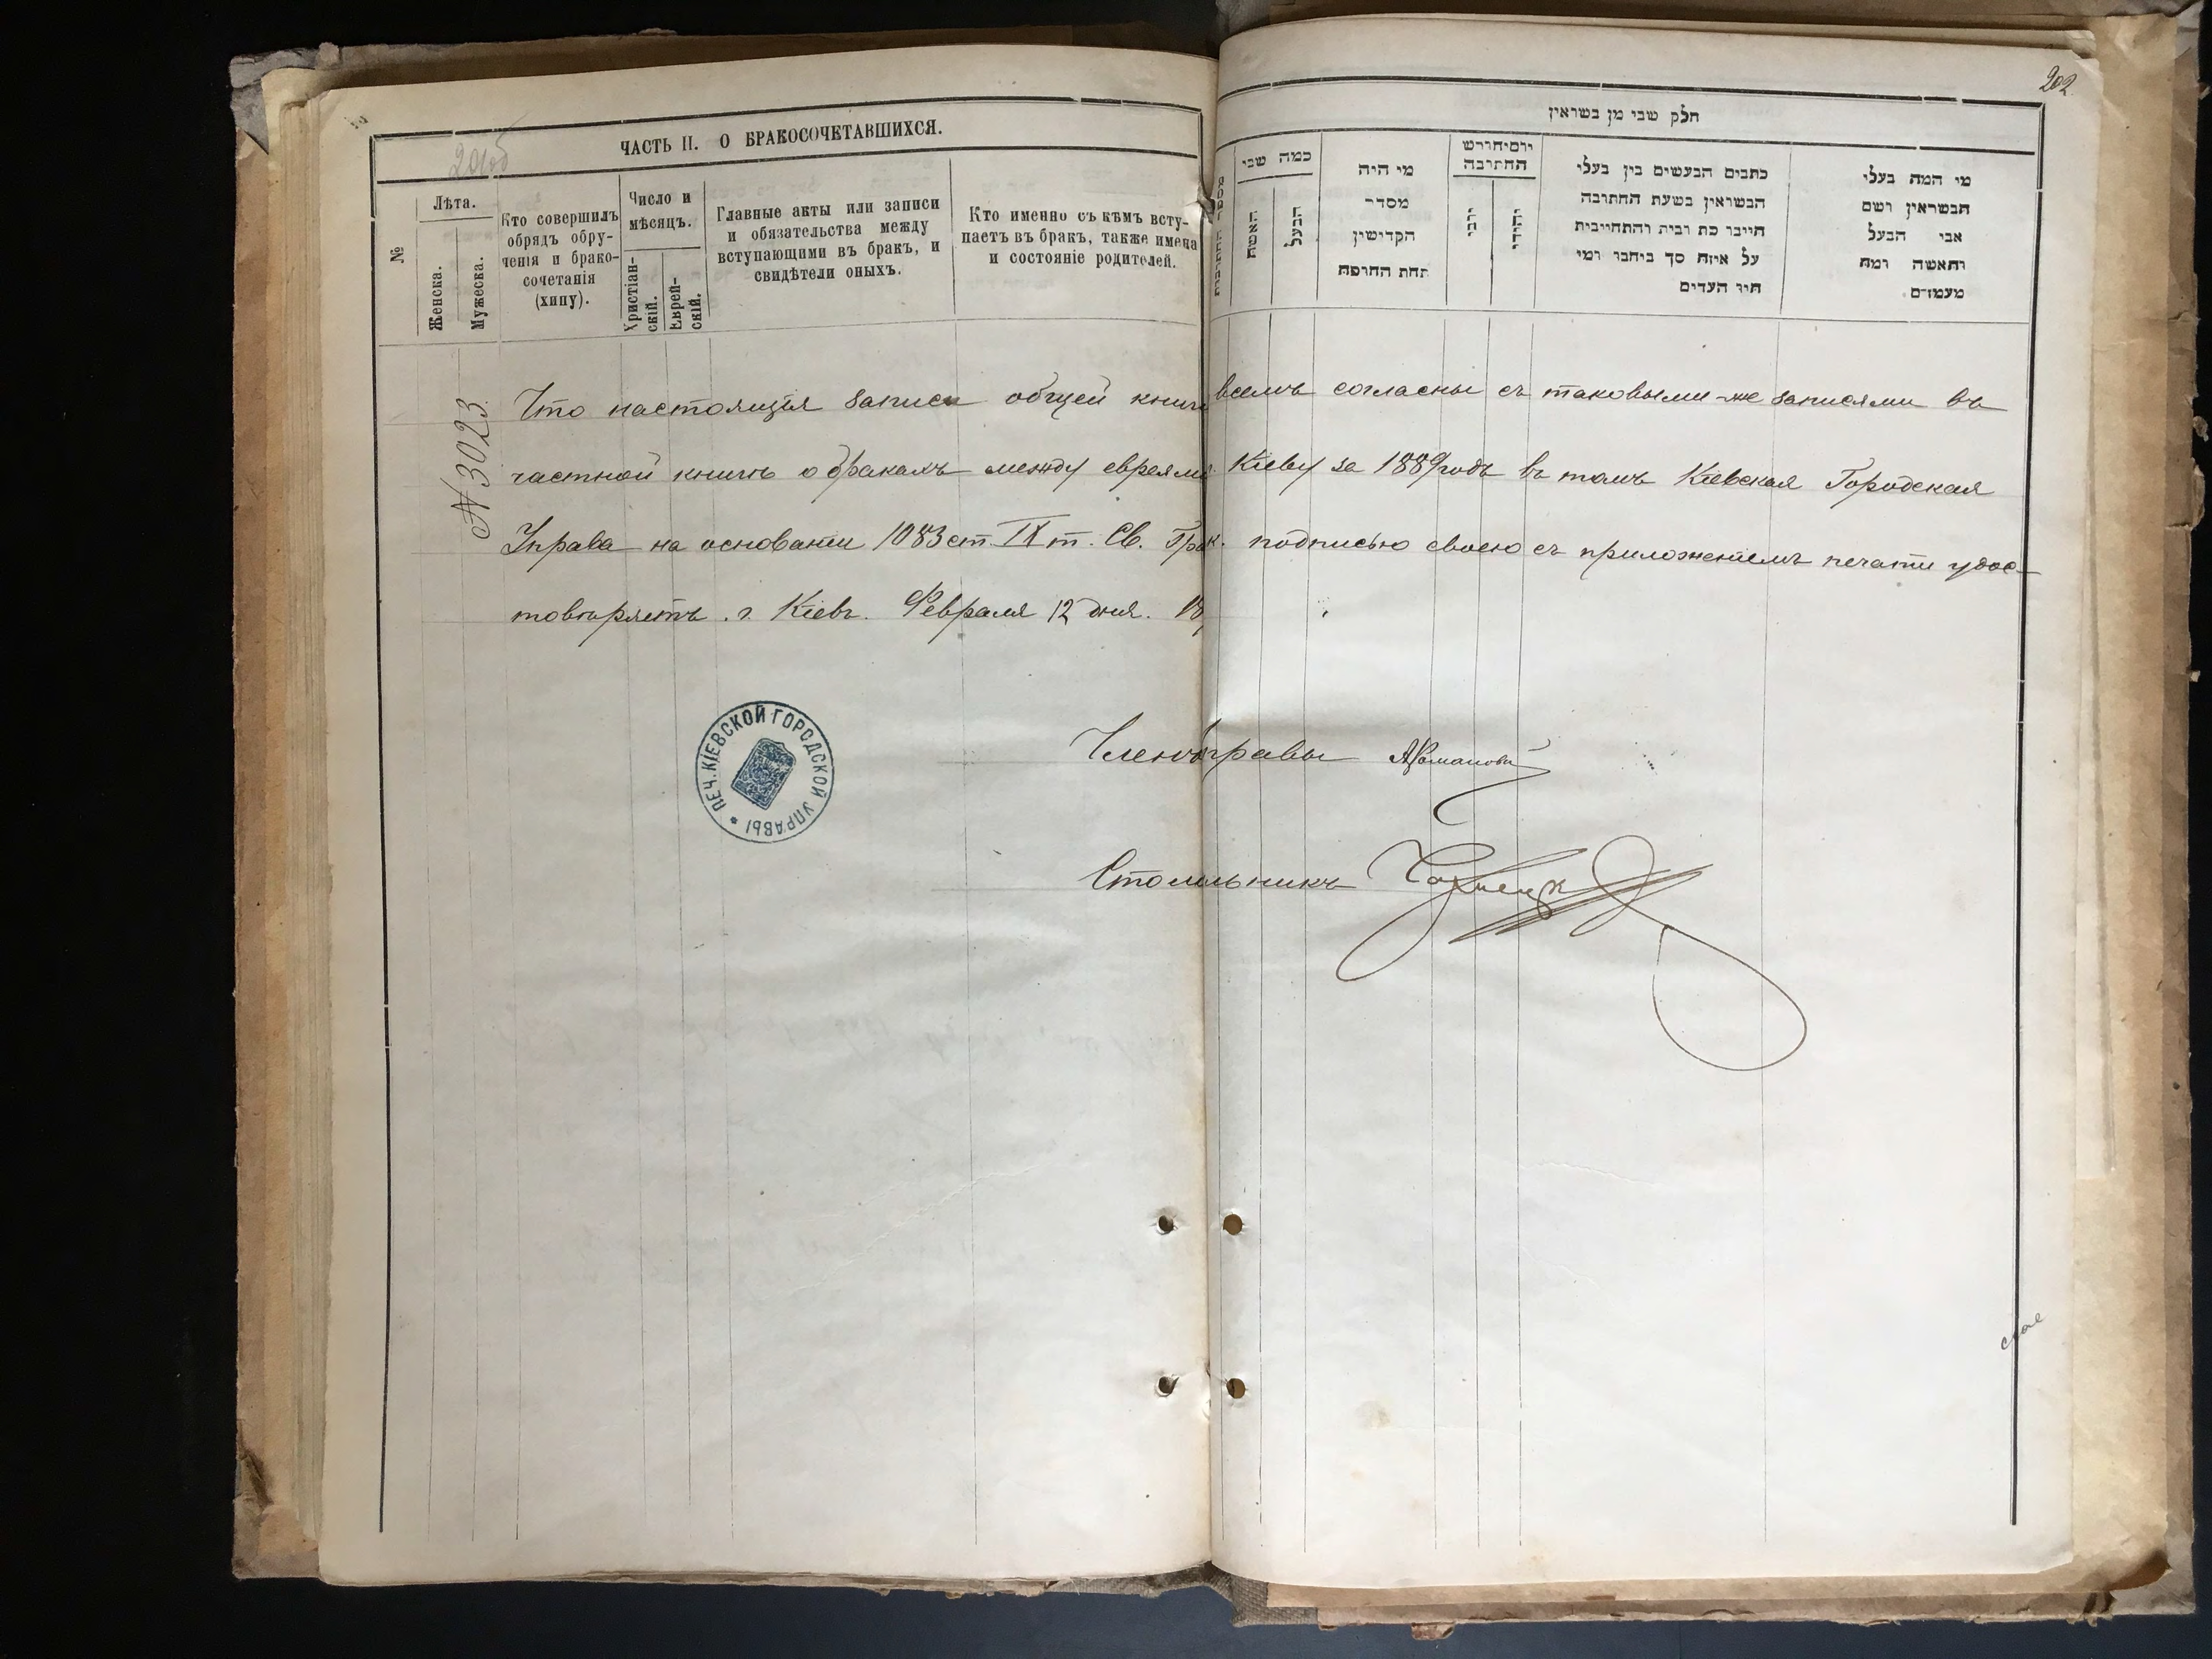 201об
ЧАСТЬ II. О БРАКОСОЧЕТАВШИХСЯ.
№
Лѣта.
Женска.
Мужеска.
Кто совершилъ
обрядъ обру-
ченія и брако-
сочетанія
(хипу).
Число и
мѣсяцъ.
Христіан-
скій.
Еврей-
скій.
Главные акты или записи
и обязательства между
вступающими въ бракъ, и
свидѣтели оныхъ.
Кто именно съ кѣмъ всту-
паетъ въ бракъ, также имена
и состояніе родителей.
202
חלק שבי מן בשואין
כמה שבי
האשה
הבעל
מי היה
מסדר
הקדישין
תחת החופה
יום יחודש
החתובה
יהודי
כתבים הבעשים בין בעלי
הבשואין בשעת החתובה
חייבו כת רבית והתחייבית
על איזה סך ביחבו ומי
היו העדים
מי המה בעלי
הבשואין ושם
אבי הבעל
והאשה ומה
מעמדם
№ 3023
Что настоящія записи общей книги всемъ согласны съ таковыми-же записями въ
частной книгѣ о бракахъ между евреями Кіеву за 1889 годъ въ томъ Кіевская Городская
Управа на основаніи 1083 ст. IX т. Св. подписью своею съ приложеніемъ печати удос-
товѣряетъ. г. Кіевъ. Февраля 12 дня. 18
ПЕЧ. КІЕВСКОЙ ГОРОДСКОЙ УПРАВЫ
Членъ Управы
Столоначальникъ